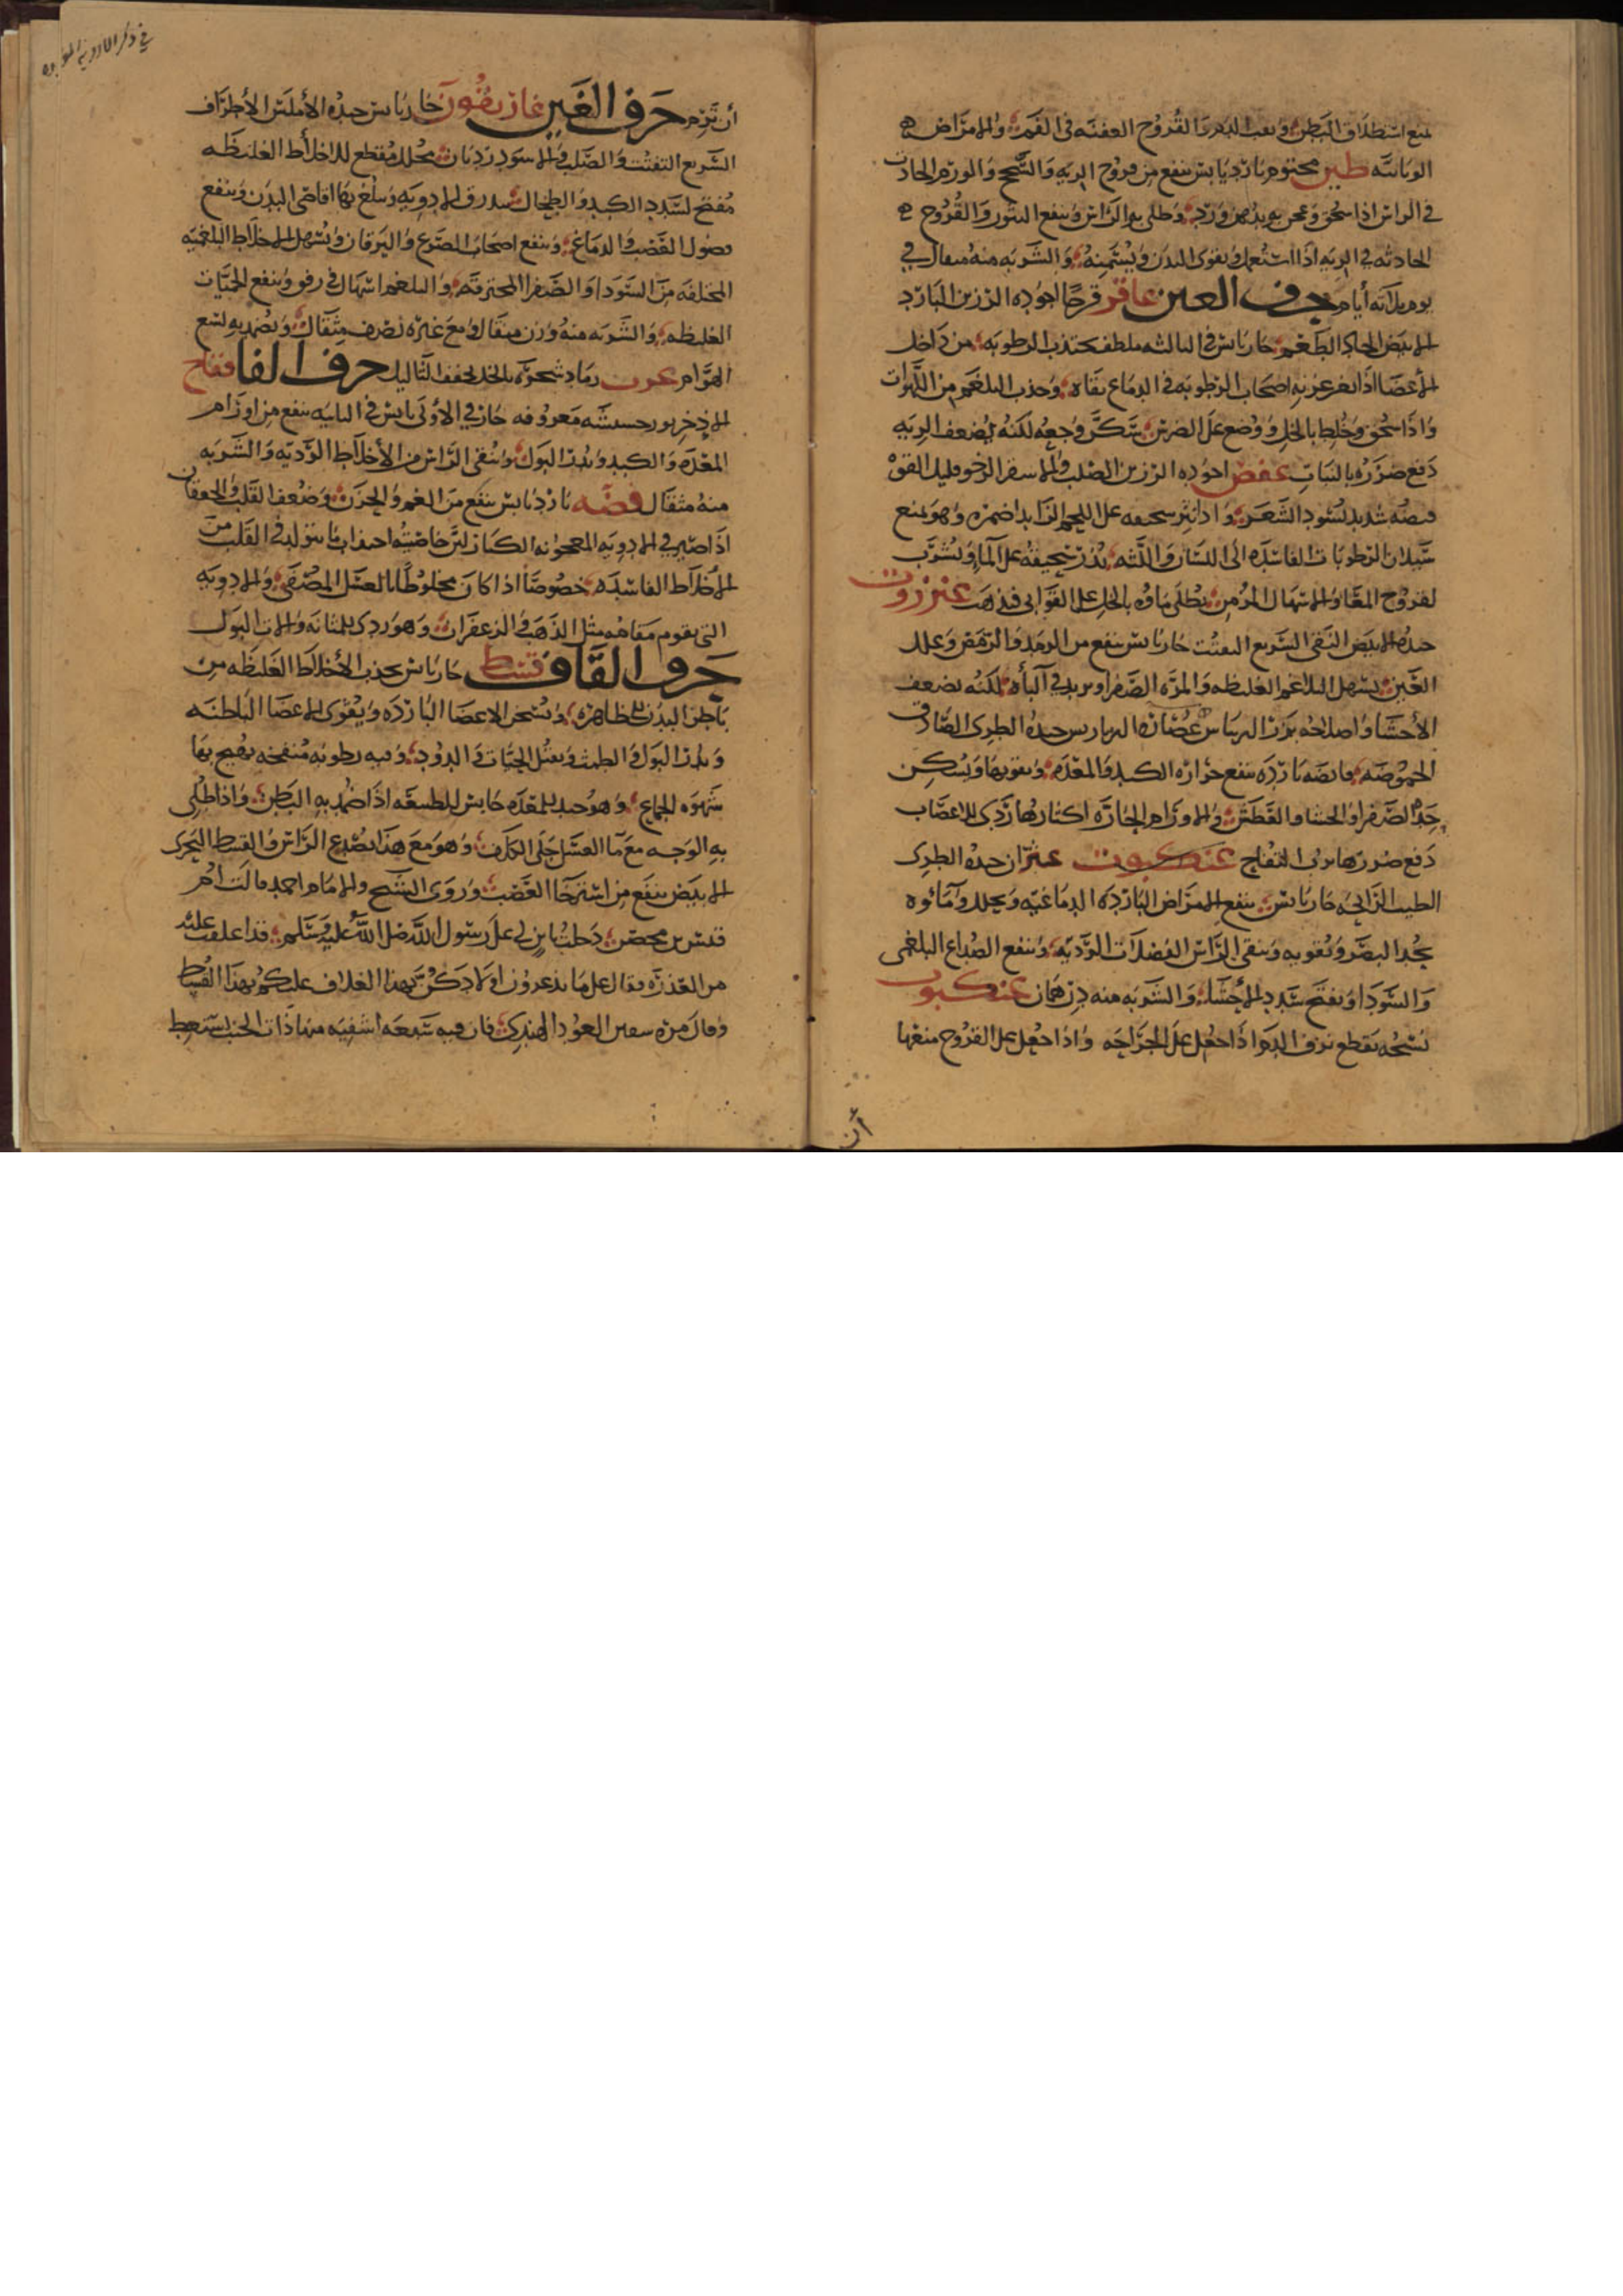 يمنع استطلاق البطن ونفث الدم والقروح العفنة في الفم والامراض
الوبائية طين مختوم بارد يابس ينفع من قروح الرية والسحج والورم الحادث
في الراس اذا سحق وعجن به بدهن ورد وطلي به الراس وينفع البثور والقروح
الحادثه في الريه اذا استعمل ويقوى البدن ويسمنه والشربه منه مثقال في
يوم ثلاثه أيام حرف العين عاقر قرحا اجوده الرزين البارد
الابيض الحاد الطعم حار يابس في الثالثه ملطف يجتذب الرطوبه من داخل
الأعضا اذا تغرغر به اصحاب الرطوبه في الدماغ نقاه وجذب البلغم من اللهوات
واذا سحق وخلط بالخل ووضع على الضرس سكن وجعه لكنه يضعف الريه
دفع ضرره بالنبات عفص اجوده الرزين الصلب والاسفر الرخو قليل القوة
قبضه شديد يسود الشعر واذا نثر سحيقه على اللحم الزايد اضمره وهو يمنع
سيلان الرطوبات الفاسده الى اللسان واللثه يذر سحيقه على الما ويشرب
لقروح المعا والاسهال المزمن يطلى ماوه بالخل على القوابي فيذهب عنزروت
جيده الابيض النقى السريع التفتت حار يابس ينفع من الرمد والرمص وعلل
العين يسهل البلاغم الغليظه والمره الصفرا ويزيد في الباه لكنه يضعف
الأحشا واصلاحه بزر الريباس عصارة الريباس جيده الطرى الصادق
الحموضه قابضه بارده ينفع حرارة الكبد والمعده ويقويها ويسكن
حدة الصفرا والحشا والعطش والاورام الحارة اكثارها ردى للاعصاب
دفع ضررها برب التفاح عنكبوت عنبر ان جيده الطرى
الطيب الرايحه حار يابس ينفع الامراض البارده الدماغيه ويحلل وماوه
يحد البصر ويقويه وينقى الراس الفضلات الرديه وينفع الصداع البلغمى
والسودا ويفتح سدد الاحشا والشربه منه درهمان عنكبوت
نسجه يقطع نزف الدم اذا جعل على الجراحه واذا جعل على القروح منعها
أن
في ذكر الادوية المفرده
أن ترم حرف الغين غاريقون حار يابس جيده الأملس الأطراف
السريع التفتت والصلب والاسود رديان محلل مقطع للاخلاط الغليظه
مفتح لسدد الكبد والطحال يبدرق الادويه وتبلغ بها اقاصى البدن وينفع
فضول العصب والدماغ وينفع اصحاب الصرع واليرقان ويسهل الاخلاط البلغميه
المختلفه من السودا والصفرا المحترقة والبلغم اسهال في رفق وينفع الحميات
الغليظه والشربه منه وزن مثقال ومع غيره نصف مثقال ويضمد به لسع
الهوام عرب رماد شجره بالخل يجفف الثاليل حرف الفا فقاح
الاذخر حشيشه معروفه حار في الأولى يابس في الثانيه ينفع من اورام
المعده والكبد ويدر البول وينقى الراس من الأخلاط الرديه والشربه
منه مثقال فضه بارد يابس ينفع من الغم والحزن وضعف القلب والخفقان
اذا صير في الادويه المعجونه الكبار لان خاصيته اجتذاب ما يتولد في القلب من
الاخلاط الفاسده خصوصا اذا كان مخلوطا بالعسل المصفى والادويه
التي يقوم مقامه مثل الذهب والزعفران وهو ردى للمثانه والات البول
حرف القاف قسط حار يابس يجذب الأخلاط الغليظه من
باطن البدن لظاهره ويسخن الاعضا البارده ويقوى الاعضا الباطنه
ويدر البول والطمث ويقتل الحيات والدود وفيه رطوبه منفخه يهيج بها
شهوه الجماع وهو جيد للمعده حابس للطبيعه اذا ضمد به البطن واذا طلى
به الوجه مع ما العسل جلى الكلف وهو مع هذا يصدع الراس والقسط البحرى
الابيض ينفع من استرخا العصب وروى الشيخ والامام احمد قالت ام
قيس بن محصن دخلت بابن لي على رسول الله صلى الله عليه وسلم قد اعلقت عليه
من العذره فقال على ما تدغرون اولادكن بهذا العلاق عليكم بهذا القسط
وقال مره سفين العود الهندى فان فيه سبعه اشفيه منها ذات الجنب يستعط